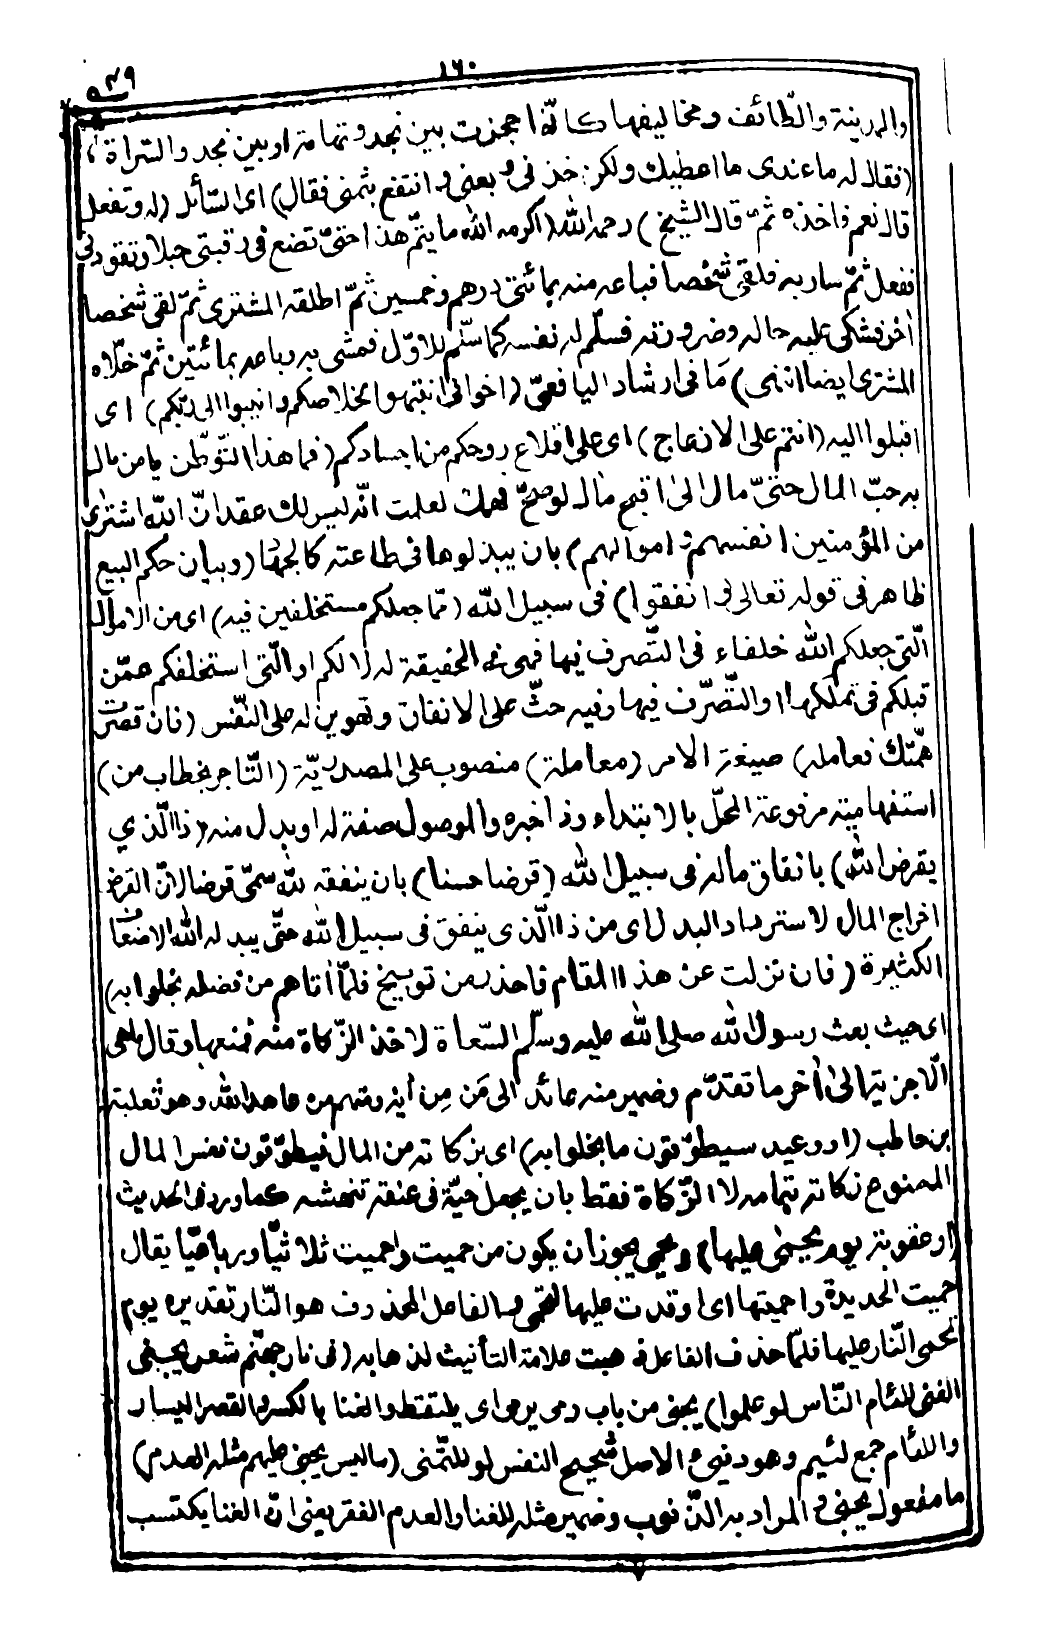 ١٦٠
والمدينة والطّائف ومخاليفها كانّها احجزت بين نجد وتهامة او بين نجد والسّراة
(فقال له ما عندى ما اعطيك ولكن خذ فى وبعنى وانتفع بثمنى فقال) اى السّائل (له وتفعل
قال نعم فاخذه ثمّ قال الشيخ) رحمه الله (اكرمه الله ما يتمّ هذا حتىّ تضع فى رقبتى حبلا وتقودنى
ففعل ثمّ سار به فلقى شخصا فباعه منه بمائتى درهم وخمسين ثمّ اطلقه المشترى ثمّ لقى شخصا
اخر فشكى عليه حاله وضرورته فسلّم له نفسه كما سلّم للاوّل فمشى به وباعه بمائتين ثمّ خلّاه
المشترى ايضا انتهى) مَا فى ارشاد اليافعىّ (اخوانى انتبهوا لخلاصكم وانيبوا الى ربّكم) اى
اقبلوا اليه (انتم على الانزعاج) اى على اقلاع روحكم من اجسادكم (فما هذا التّوطّن يا من مال
به حبّ المال حتىّ مال الى اقبح مال لو صحّ فهمك لعلمت انّه ليس لك عقد انّ الله اشترى
من المؤمنين انفسهم واموالهم) بان يبذلوها فى طاعته كالجهاد (وبيان حكم البيع
ظاهر فى قوله تعالى وانفقوا) فى سبيل الله (ممّا جعلكم مستخلفين فيه) اى من الاموال
الّتى جعلكم الله خلفاء فى التّصرف فيها فهى فى الحقيقة له لا لكم او الّتى استخلفكم عمّن
قبلكم فى تملّكها والتّصرّف فيها وفيه حثّ على الانفاق وتهوين له على النّفس (فان قصرت
همّتك فعامله) صيغة الامر (معاملة) منصوب على المصدريّة (التّاجر بخطاب من)
استفهاميّة مرفوعة المحلّ بالابتداء وذا خبره والموصول صفة له او بدل منه (ذا الّذي
يقرض الله) بانفاق ماله فى سبيل الله (قرضا حسنا) بان ينفقه لله سمّى قرضا لانّ القرض
اخراج المال لاسترداد البدل اى من ذا الّذى ينفق فى سبيل الله حتّى يبدله الله الاضعاف
الكثيرة (فان نزلت عن هذا المقام فاحذر من توبيخ فلمّا أتاهم من فضله بخلوا به)
اى حيث بعث رسول الله صلى الله عليه وسلّم السّعاة لاخذ الزّكاة منه فمنعها وقال ما هى
الّا جزية الى أخر ما تقدّم وضمير منه عائد الى مَن مِن أية ومنهم من عاهد الله وهو ثعلبة
بن حاطب (او وعيد سيطوّقون ما بخلوا به) اى بزكاته من المال فيطوّقون نفس المال
الممنوع زكاته بتمامه لا الزّكاة فقط بان يجعل حيّة فى عنقه تنهشه كما ورد فى الحديث
(او عقوبة يوم يحمى عليها) ويحمى يجوز ان يكون من حميت واحميت ثلاثيّا ورباعيّا يقال
حميت الحديدة واحميتها اى اوقدت عليها لتحمى والفاعل المحذوف هو النّار تقديره يوم
تحمى النّار عليها فلمّا حذف الفاعل ذهبت علامة التأنيث لذهابه (فى نار جهنّم شعر يجبنى
الغنى للئام النّاس لو علموا) يجنى من باب رمى يرمى اى يلتقط والغنا بالكسر والقصر اليسار
واللئام جمع لئيم وهو دنىء الاصل شحيح النفس لو للتّمنى (ما ليس يجنى عليهم مثله العدم)
ما مفعول يجنى والمراد به الذّنوب وضمير مثله للغنا والعدم الفقر يعنى انّ الغنا يكتسب